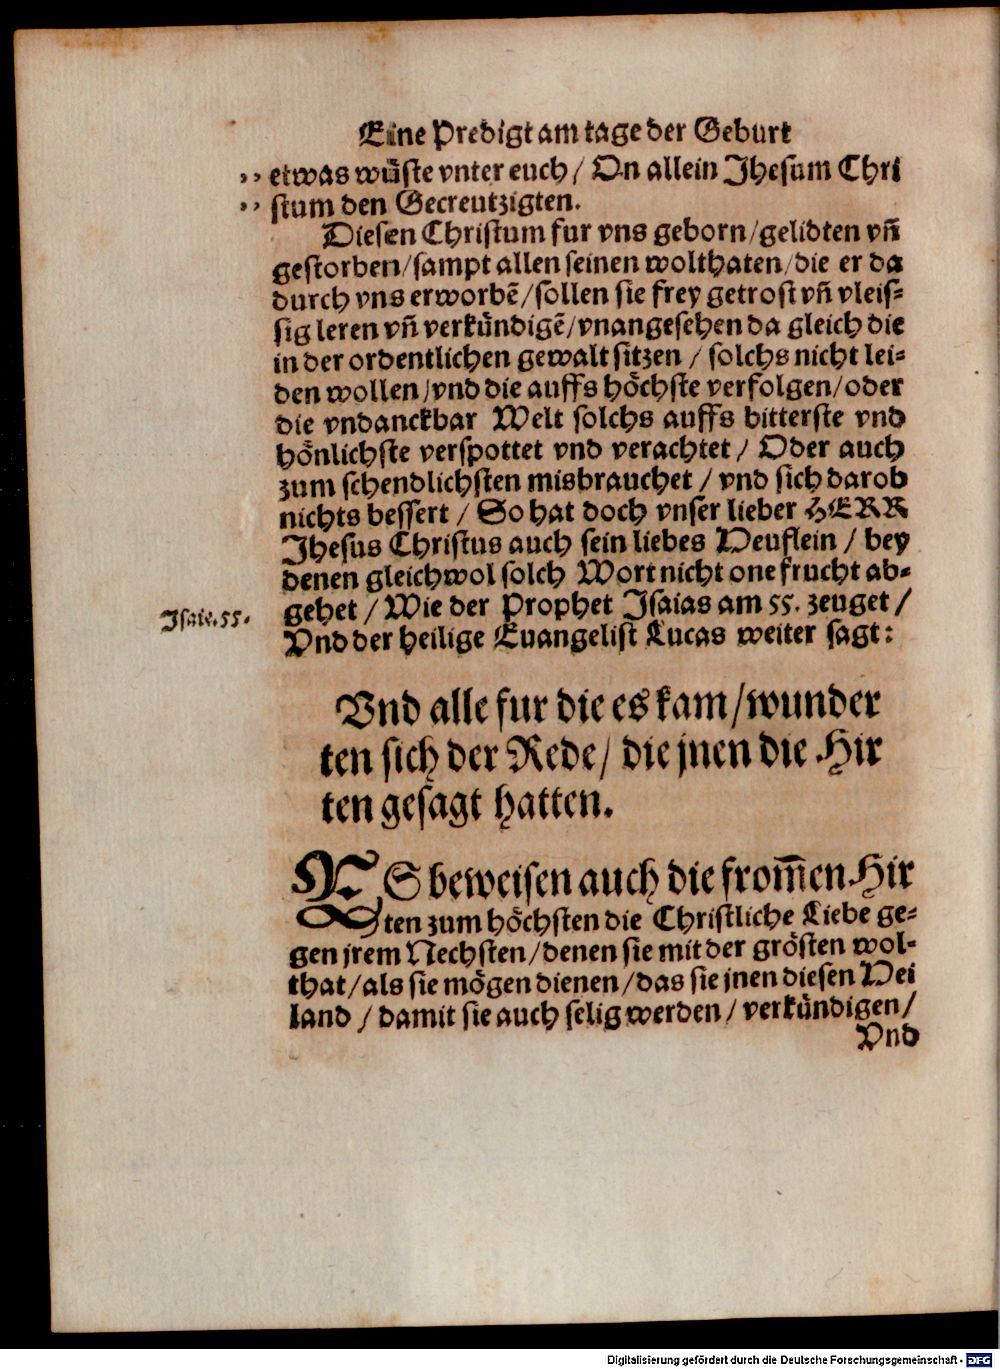 Eine Predigt am tage der Geburt
,, etwas wüste vnter euch / On allein Jhesum Chri
,, stum den Gecreutzigten.
Diesen Christum fur vns geborn/gelidten vñ
gestorben/sampt allen seinen wolthaten/die er da
durch vns erworbẽ/sollen sie frey getrost vñ vleis=
sig leren vñ verkündigẽ/vnangesehen da gleich die
in der ordentlichen gewalt sitzen / solchs nicht lei=
den wollen/vnd die auffs höchste verfolgen/oder
die vndanckbar Welt solchs auffs bitterste vnd
hönlichste verspottet vnd verachtet / Oder auch
zum schendlichsten misbrauchet / vnd sich darob
nichts bessert / So hat doch vnser lieber HERR
Jhesus Christus auch sein liebes Heuflein / bey
denen gleichwol solch Wort nicht one frucht ab=
gehet / Wie der Prophet Isaias am 55. zeuget /
Isaie.55.
Vnd der heilige Euangelist Lucas weiter sagt:
Vnd alle fur die es kam/wunder
ten sich der Rede/ die jnen die Hir
ten gesagt hatten.
ES beweisen auch die from̃en Hir
ten zum höchsten die Christliche Liebe ge=
gen jrem Nechsten/denen sie mit der grösten wol=
that/als sie mögen dienen/das sie jnen diesen Hei
land / damit sie auch selig werden / verkündigen/
Vnd
Digitalisierung gefördert durch die Deutsche Forschungsgemeinschaft - DFG